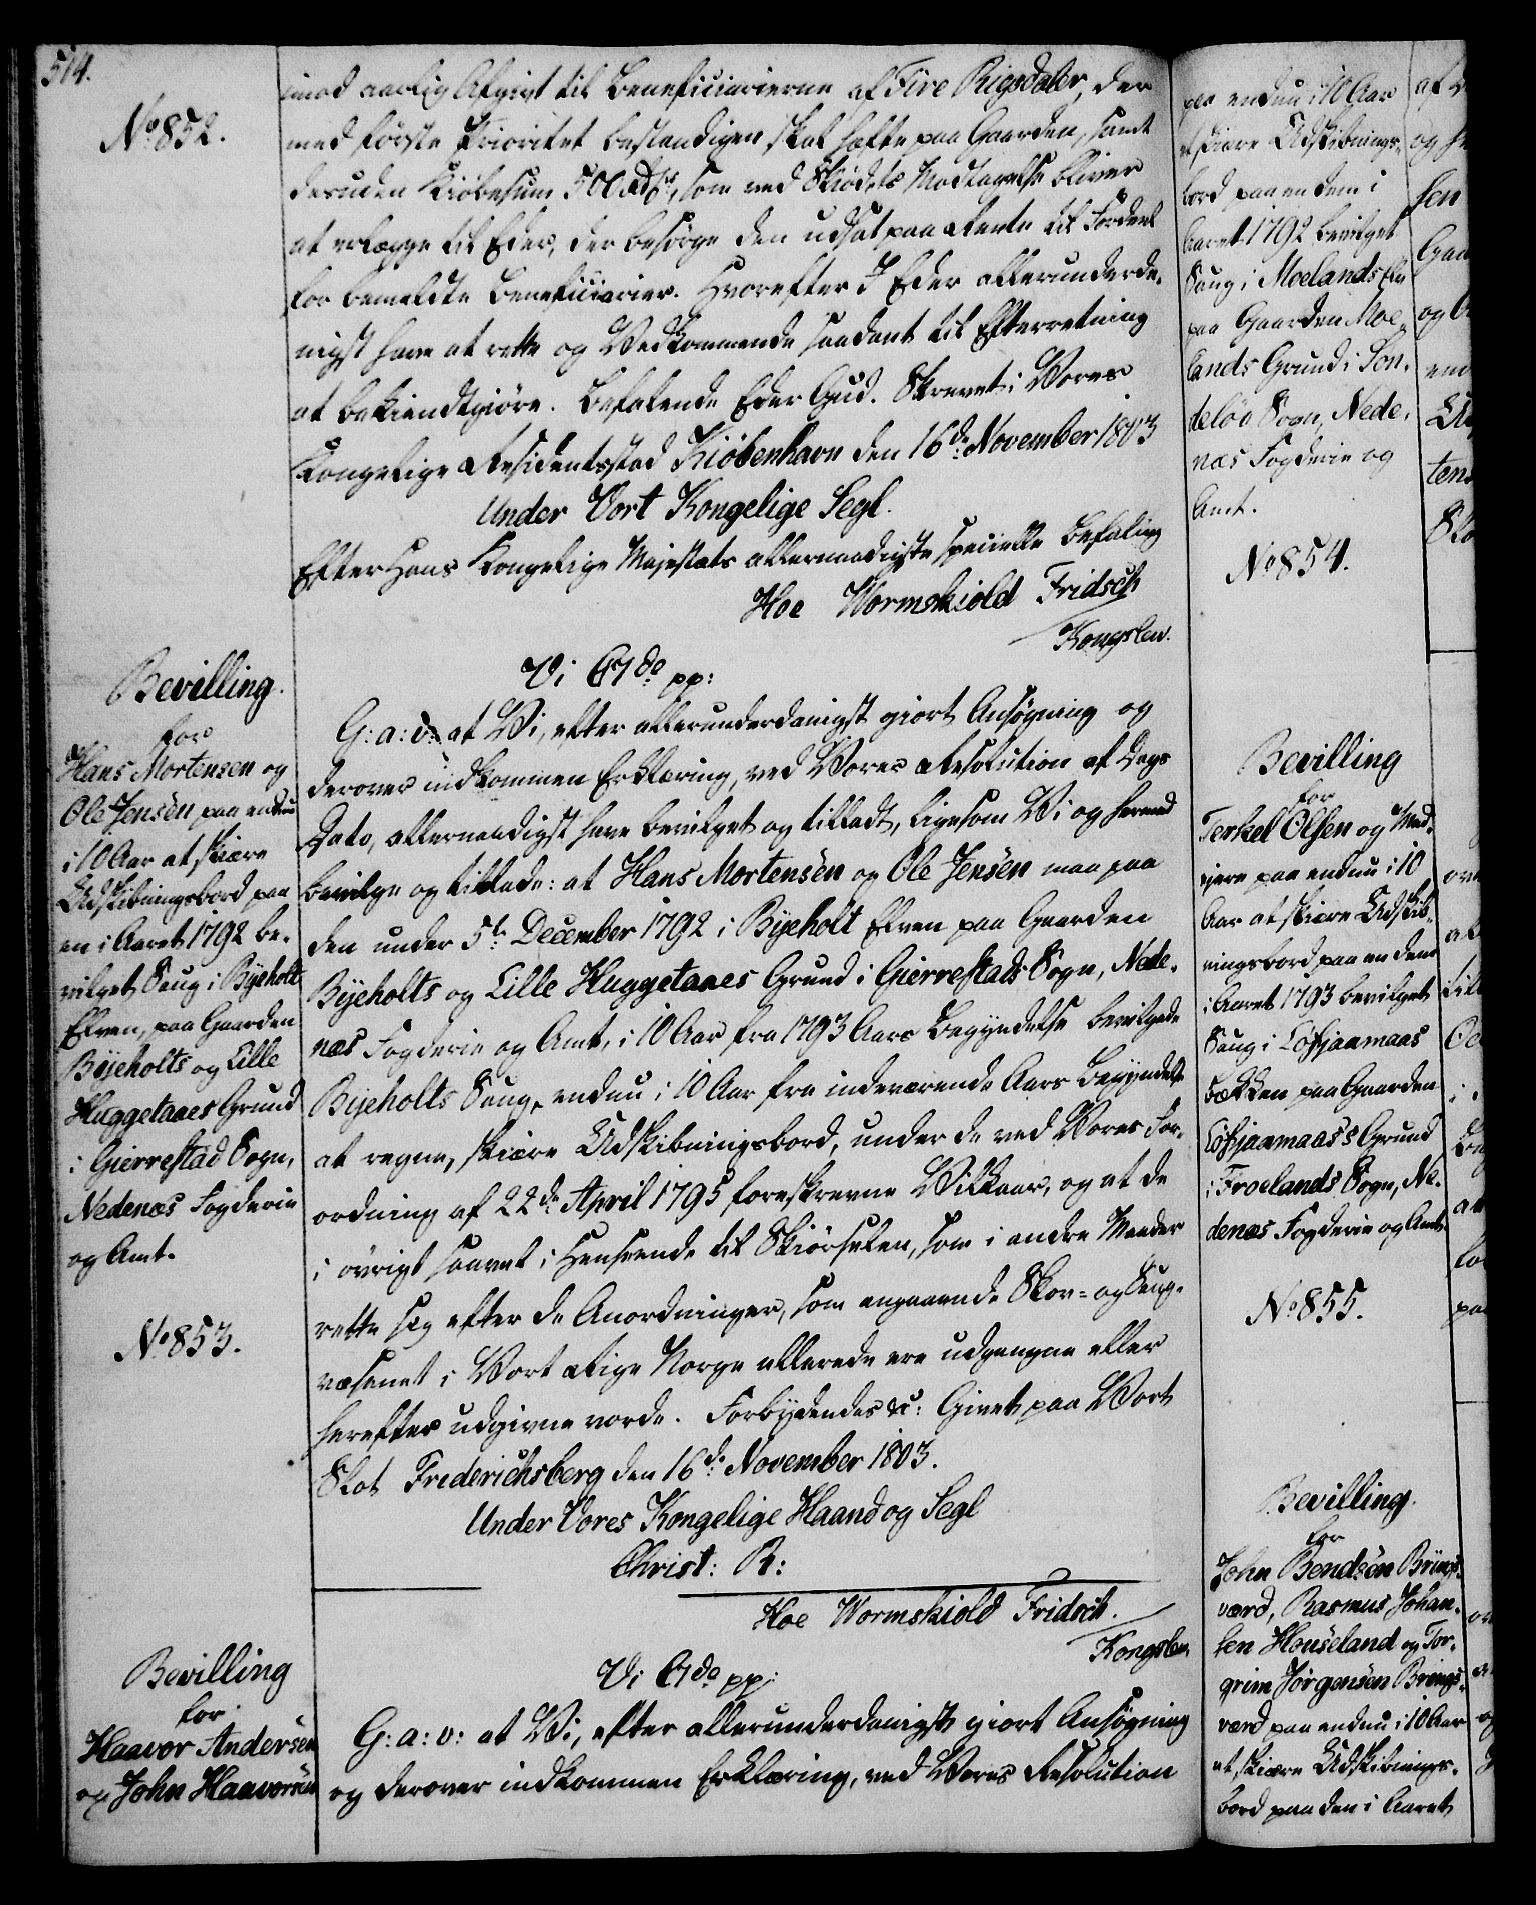 514.
No 852.
imod aarlig Afgivt til Beneficiarierne af Fire Rigsdaler, der
med første Prioritet bestandigen skal hæfte paa Gaarden, samt
desuden Kiøbesum 500 rd, som ved Skiødets Modtagelse bliver
at erlægge til Eder, der besørge den udsat paa Rente til Fordeel
for bemeldte Beneficiarier. Hvorefter I Eder allerunderda-
nigst have at rette og Vedkommende saadant til Efterretning
at bekiendtgiøre. Befalende Eder Gud. Skrevet i Vores
Kongelige Residentsstad Kiöbenhavn den 16de November 1803
Under Vort Kongelige Segl.
Efter Hans Kongelige Majestæts allernaadigste specielle Befaling
Hoe Wormskiold Fridsch
Kongslew.
Bevilling
for
Hans Mortensen og
Ole Jensen paa endnu
i 10 Aar at skiære
Udskibningsbord paa
en i Aaret 1792 be-
vilget Saug i Byeholt
Elven, paa Gaarden
Byeholts og Lille
Huggetaaes Grund
i Gierrestad Sogn,
Nedenæs Fogderie
og Amt.
No 853.
Vi C7de pp:
G: a: v: at Vi, efter allerunderdanigst giort Ansøgning og
derover indkommen Erklæring, ved Vores Resolution af Dags
Dato, allernaadigst have bevilget og tilladt, ligesom Vi og herved
bevilge og tillade: at Hans Mortensen og Ole Jensen maa paa
den under 5te December 1792 i Byeholt Elven paa Gaarden
Byeholts og Lille Huggetaaes Grund i Gierrestads Sogn, Nede-
næs Fogderie og Amt, i 10 Aar fra 1793 Aars Begyndelse bevilgede
Byeholts Saug, endnu i 10 Aar fra indeværende Aars Begyndelse
at regne, skiære Udskibningsbord, under de ved Vores For-
ordning af 22de April 1795 foreskrevne Vilkaar, og at de
i øvrigt saavel i Henseende til Skiørselen, som i andre Maader
rette sig efter de Anordninger, som angaaende Skov- og Saug-
væsenet i Vort Rige Norge allerede ere udgangne eller
herefter udgivne vorde. Forbydendes &c: Givet paa Vort
Slot Frederichsberg den 16de November 1803.
Under Vores Kongelige Haand og Segl
Christ: R:
Hoe Wormskiold Fridsch.
Kongslew.
Bevilling
for
Haavor Andersen
og John Haavorsen
Vi C7de pp:
G: a: v: at Vi, efter allerunderdanigst giort Ansøgning
og derover indkommen Erklæring, ved Vores Resolution
paa endnu i 10 Aar
at skiære Udskibnings-
bord paa en dem i
Aaret 1792 bevilget
Saug i Moelands Elv
paa Gaarden Moe-
lands Grund i Son-
deløv Sogn, Nede-
næs Fogderie og
Amt.
No 854.
Bevilling
for
Terkel Olsen og Med-
ejere paa endnu i 10
Aar at skiære Udskib-
ningsbord paa en dem
i Aaret 1793 bevilget
Saug i Løfsjaamaas
Bækken paa Gaarden
Løfsjaamaas's Grund
i Froelands Sogn, Ne-
denæs Fogderie og Amt.
No 855.
Bevilling
for
John Bendsön Brings-
værd, Rasmus Johan-
sen Houseland og Tor-
grim Jörgensen Brings-
værd paa endnu i 10 Aar
at skiære Udskibnings-
bord paa den i Aaret